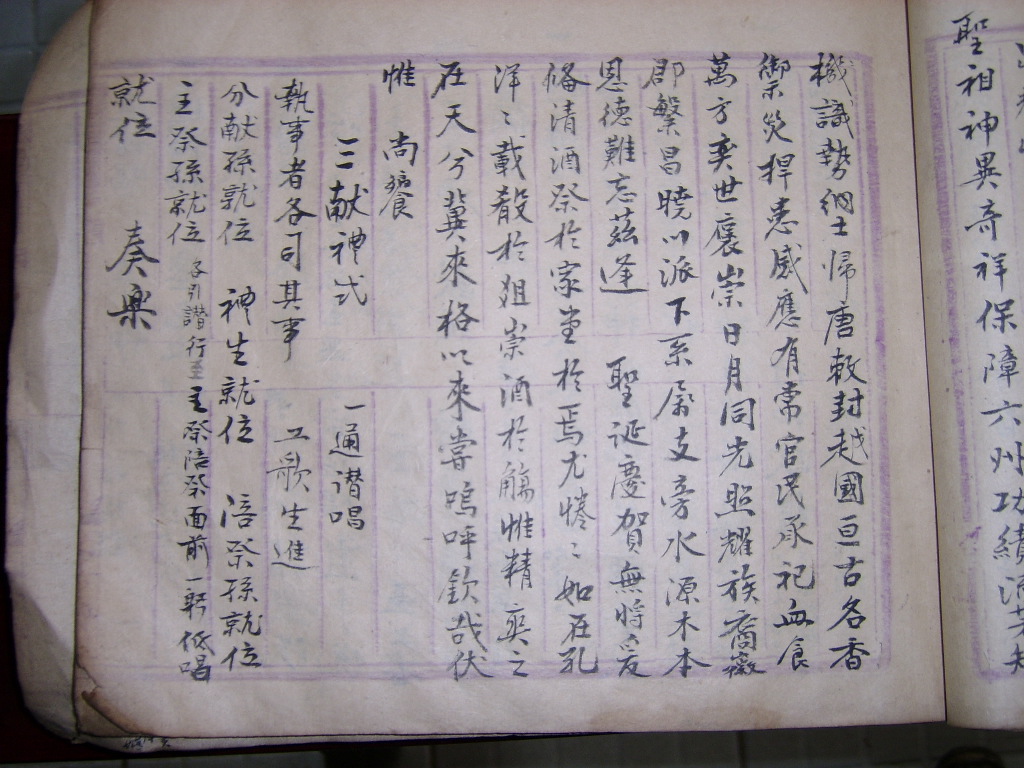 聖祖神異奇祥保障六州功績
機識勢納土歸唐敕封越國亘古名香
御災捍患感應有常官民承祀血食
萬方奕世褒崇日月同光照耀族裔徽
郡繁昌曉川派下系屬支旁水源木本
恩德難忘茲逢 聖誕慶賀無將爰
俻清酒祭於家堂於焉尤惓〻如在孔
洋〻載殽於俎崇酒於觴惟精奠之
在天兮冀來格以來嘗嗚呼欽哉伏
惟 尚饗
三献神式 一通譜唱
執事者各司其事 工歌生進
分献孫就位 神生就位 陪祭孫就位
主祭孫就位 子引譜行至主祭陪祭面前一躬低唱
就位 奏樂